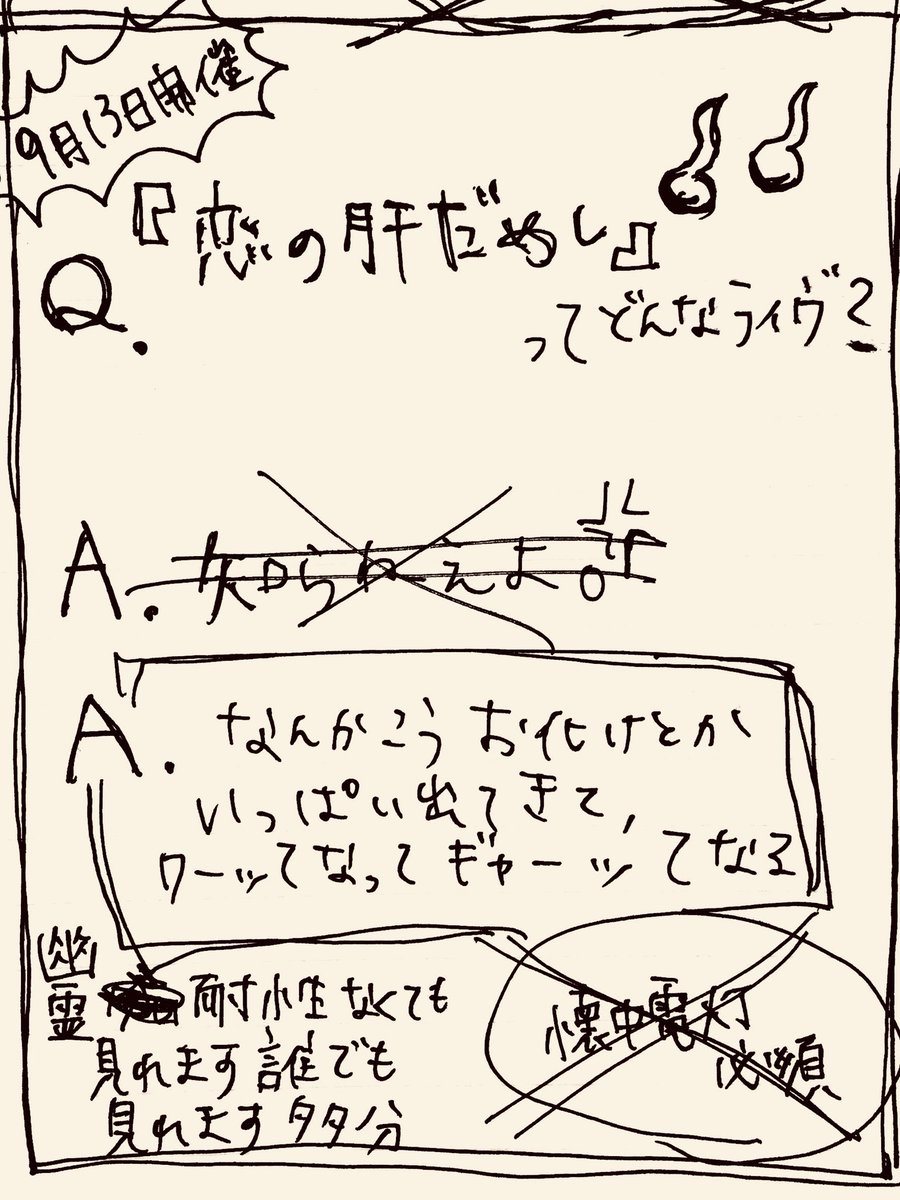 9月13日開催
Q.『恋の肝だめし』
ってどんなライヴ?
A. 知らねーえよ
A. なんかこう お化けとか
いっぱい出てきて,
ワーッてなって ギャーッ てなる
幽霊 耐性なくても
見れます誰でも
見れます タタ分
懐中電灯
必須